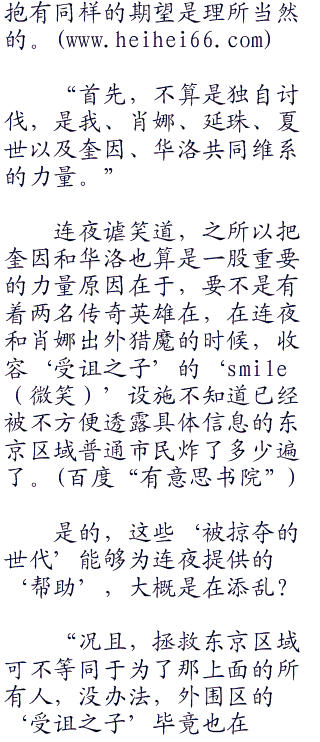 抱有同样的期望是理所当然
的。(www.heihei66.com)
“首先，不算是独自讨
伐，是我、肖娜、延珠、夏
世以及奎因、华洛共同维系
的力量。”
连夜谑笑道，之所以把
奎因和华洛也算是一股重要
的力量原因在于，要不是有
着两名传奇英雄在，在连夜
和肖娜出外猎魔的时候，收
容‘受诅之子’的‘smile
（微笑）’设施不知道已经
被不方便透露具体信息的东
京区域普通市民炸了多少遍
了。(百度“有意思书院”)
是的，这些‘被掠夺的
世代’能够为连夜提供的
‘帮助’，大概是在添乱？
“况且，拯救东京区域
可不等同于为了那上面的所
有人，没办法，外围区的
‘受诅之子’毕竟也在